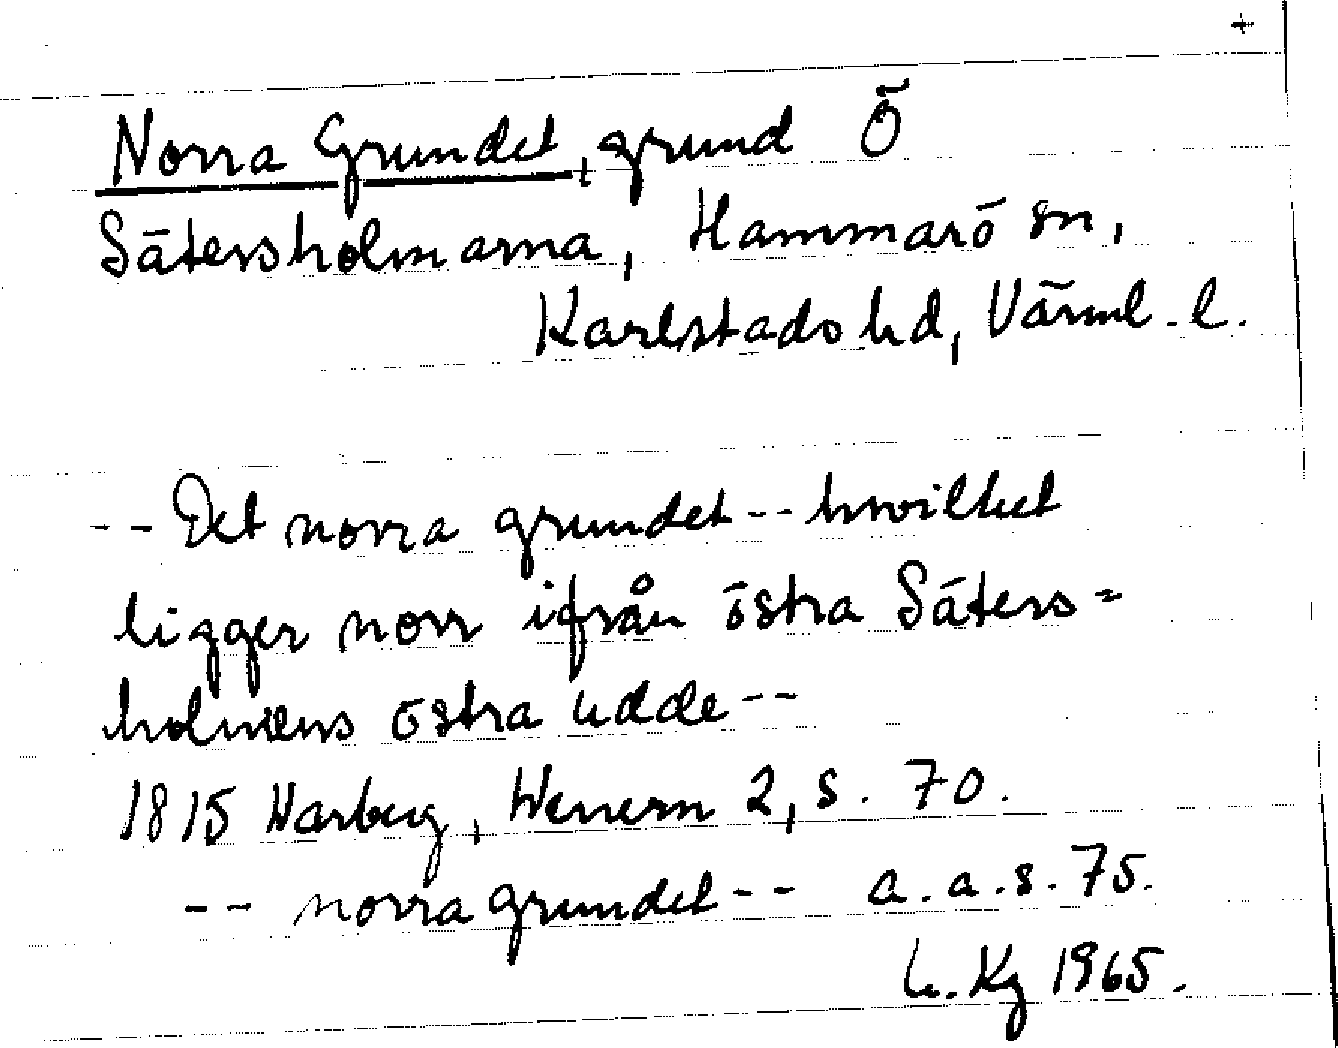 +
Norra Grundet, grund Ö
Sätersholmarna, Hammarö sn,
Karlstads hd, Värml. l.
-- Det norra grundet -- hwilket
ligger norr ifrån östra Säters=
holmens östra udde --
1815 Warberg, Wenern 2, s. 70.
-- norra grundet -- a. a. s. 75.
Kg 1965.